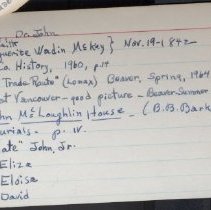 Dr. John
guerite Wadin McKay } Nov. 19-1842
Ca. History, 1960, p. 14
Trade Route" (Lomax) Beaver, Spring, 1964
t Vancouver - good picture - Beaver-Summer
hn McLoughlin House - (B.B. Bark
urials - p. IV.
ate" John, Jr.
Eliza
Eloisa
David